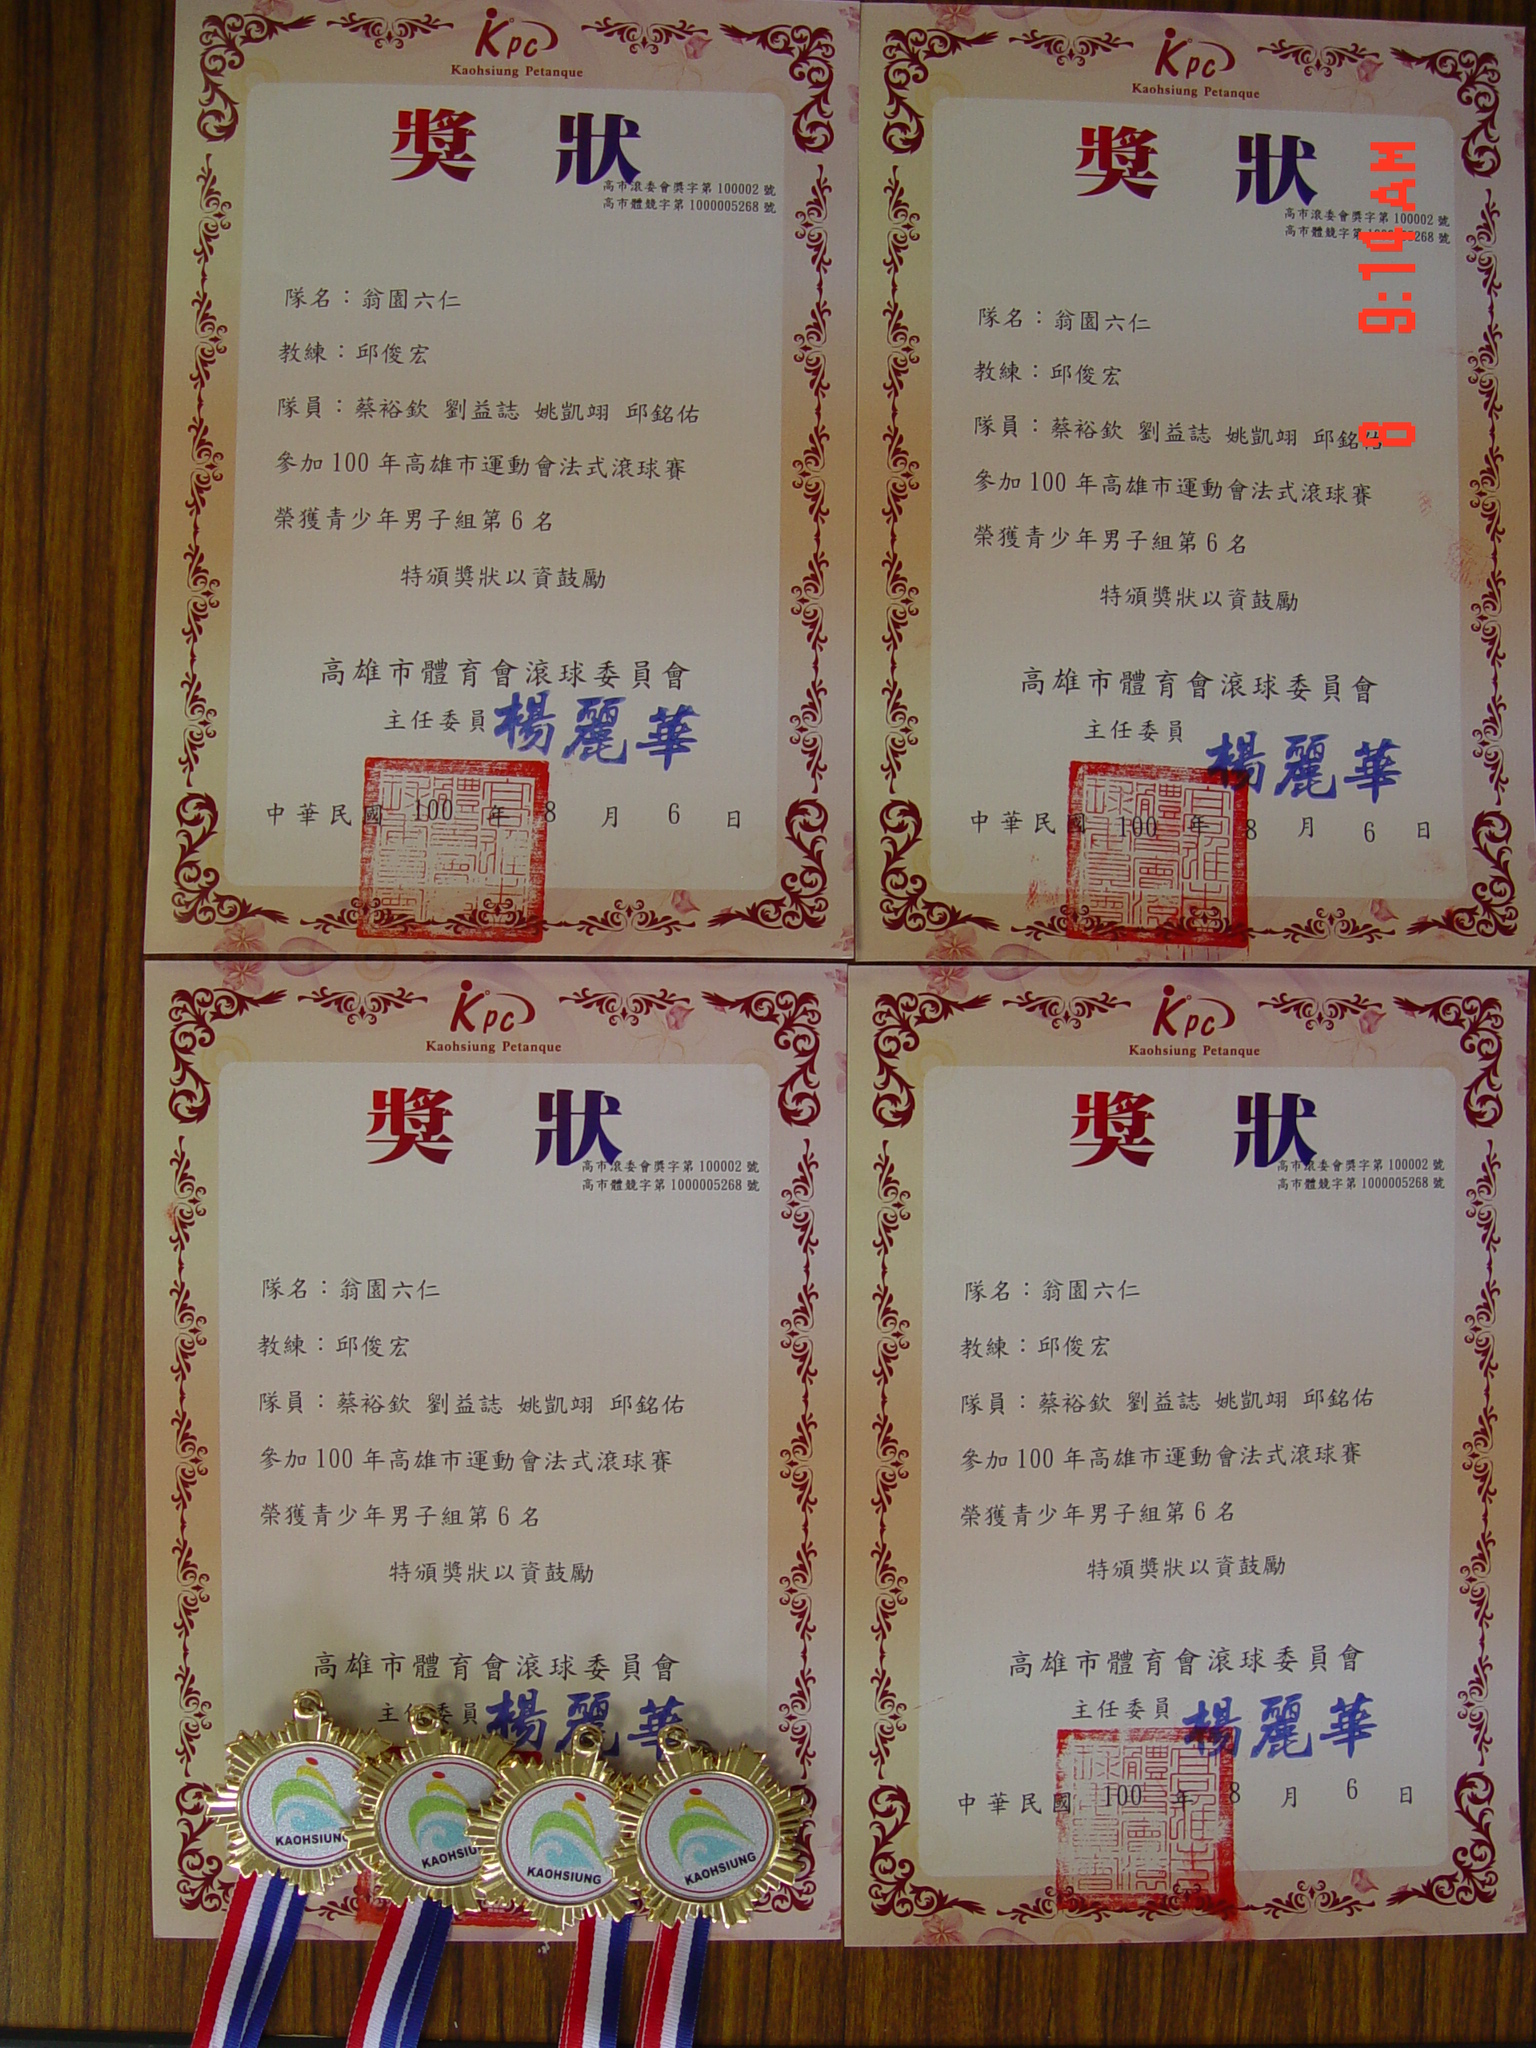 Kpc
Kaohsiung Petanque
獎 狀
高市滾委會獎字第 100002 號
高市體競字第 1000005268 號
隊名：翁園六仁
教練：邱俊宏
隊員：蔡裕欽 劉益誌 姚凱翊 邱銘佑
參加 100 年高雄市運動會法式滾球賽
榮獲青少年男子組第 6 名
特頒獎狀以資鼓勵
高雄市體育會滾球委員會
主任委員 楊麗華
中華民國 100 年 8 月 6 日
Kpc
Kaohsiung Petanque
獎 狀
高市滾委會獎字第 100002 號
高市體競字第 268 號
隊名：翁園六仁
教練：邱俊宏
隊員：蔡裕欽 劉益誌 姚凱翊 邱銘佑
參加 100 年高雄市運動會法式滾球賽
榮獲青少年男子組第 6 名
特頒獎狀以資鼓勵
高雄市體育會滾球委員會
主任委員 楊麗華
中華民國 100 年 8 月 6 日
9:14 AM
Kpc
Kaohsiung Petanque
獎 狀
高市滾委會獎字第 100002 號
高市體競字第 1000005268 號
隊名：翁園六仁
教練：邱俊宏
隊員：蔡裕欽 劉益誌 姚凱翊 邱銘佑
參加 100 年高雄市運動會法式滾球賽
榮獲青少年男子組第 6 名
特頒獎狀以資鼓勵
高雄市體育會滾球委員會
主任委員 楊麗華
KAOHSIUNG
KAOHSIU
KAOHSIUNG
KAOHSIUNG
Kpc
Kaohsiung Petanque
獎 狀
高市滾委會獎字第 100002 號
高市體競字第 1000005268 號
隊名：翁園六仁
教練：邱俊宏
隊員：蔡裕欽 劉益誌 姚凱翊 邱銘佑
參加 100 年高雄市運動會法式滾球賽
榮獲青少年男子組第 6 名
特頒獎狀以資鼓勵
高雄市體育會滾球委員會
主任委員 楊麗華
中華民國 100 年 8 月 6 日